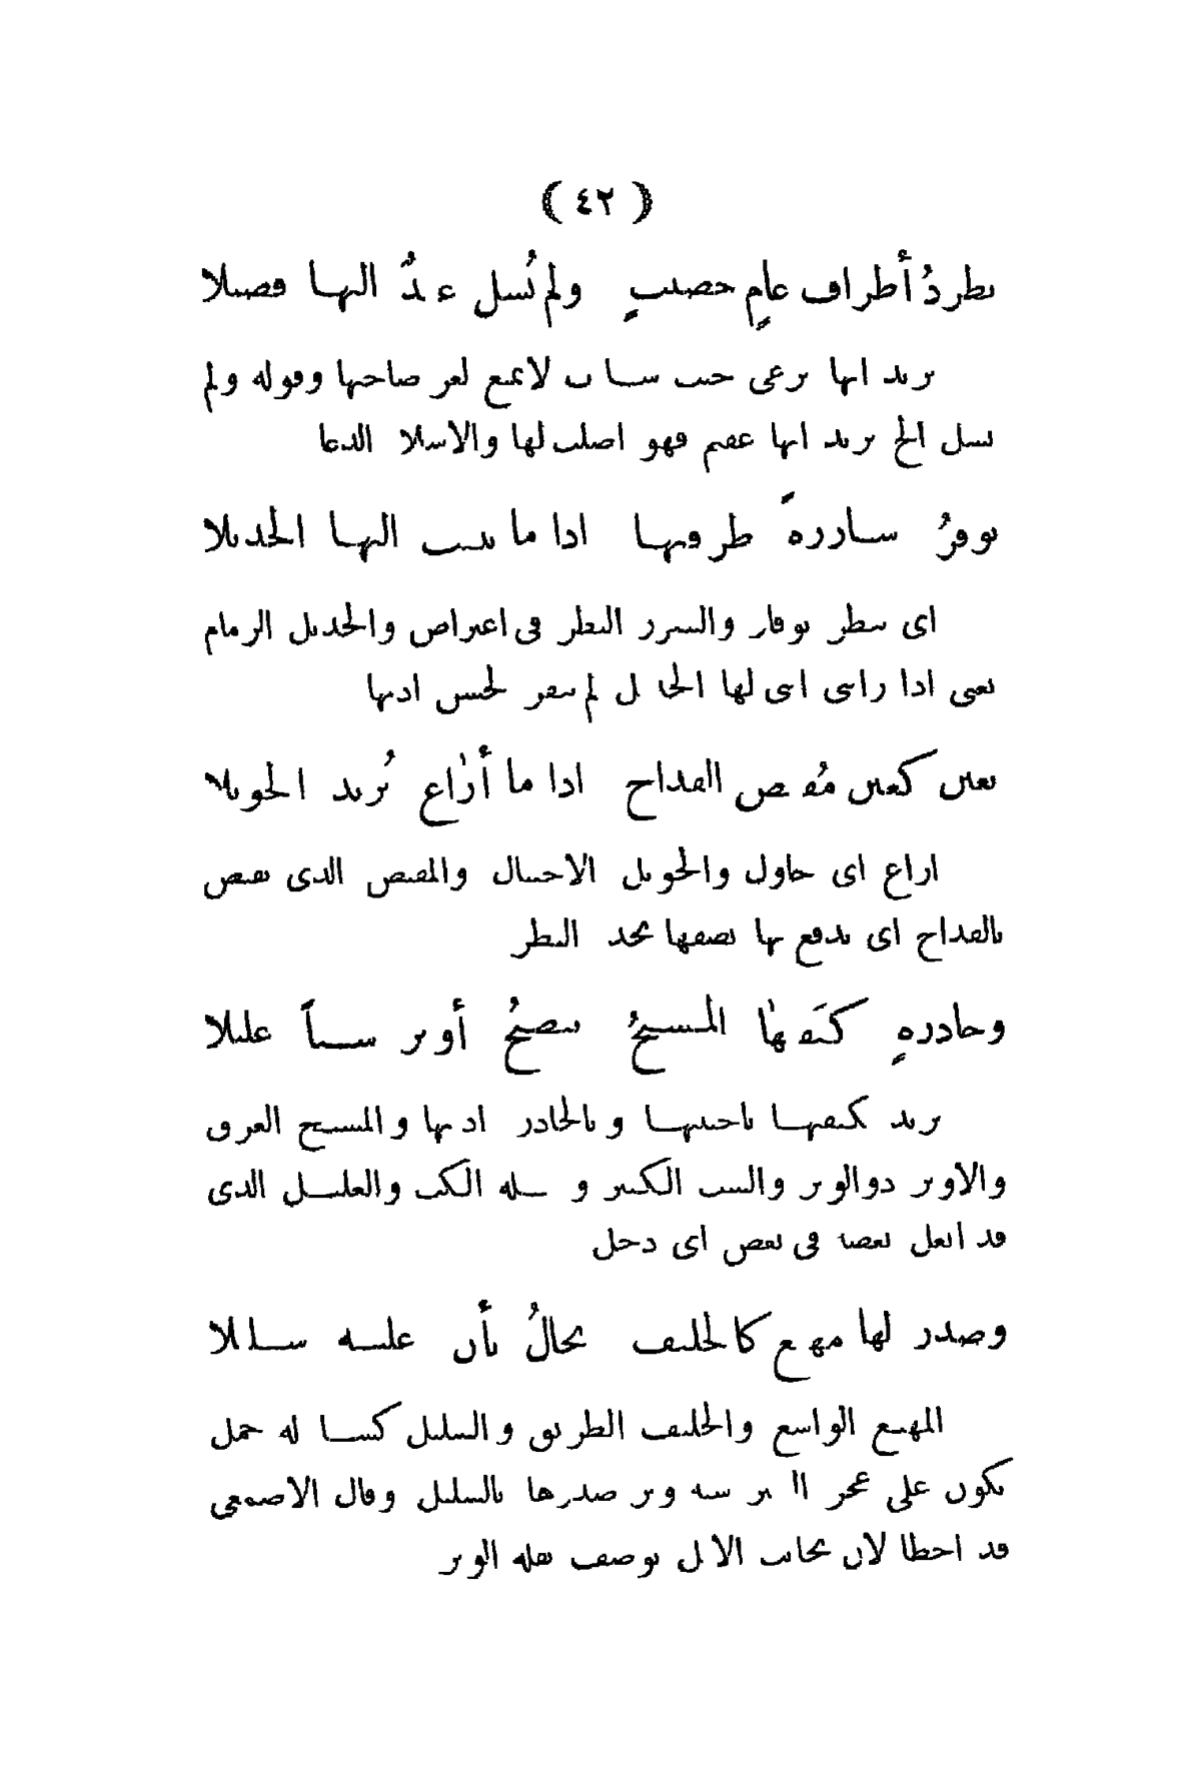 ﴿ ٤٢ ﴾
تطردُ أطراف عامٍ خصيبٍ ولم يُشل عبدٌ اليها فصيلا
يريد انها ترعى حيث شاءت لا تمنع لعز صاحبها وقوله ولم
يشل الخ يريد انها عقيم فهو اصلب لها والاشلاء الدعاء
توقرُ شازرةً طرفيها اذا ما ثنيت اليها الجديلا
اى تنظر بوقار والشزر النظر فى اعتراض والجديل الزمام
يعنى اذا رأى اى لها الجديل لم تنفر لحسن ادبها
بعين كعين مُفيض القداح اذا ما أراغ يُريد الحويلا
اراغ اى حاول والحويل الاحتيال والمفيض الذى يفيض
بالقداح اى يدفع بها يصفها بحدة النظر
وحادرةٍ كنَفيها المسيحُ تنضحُ أوبر شثاً غليلا
يريد كنفيها ناحيتيها وبالحادر اذنها والمسيح العرق
والاوبر ذو الوبر والشث الكثير و مثله الكث والغليل الذى
قد انغل بعضه فى بعض اى دخل
وصدر لها مهيع كالخليف تخالُ بأن عليه شليلا
المهيع الواسع والخليف الطريق والشليل كساء له خمل
يكون على عجز البعير شبه وبر صدرها بالشليل وقال الاصمعى
قد اخطأ لان نجائب الابل توصف بقلة الوبر